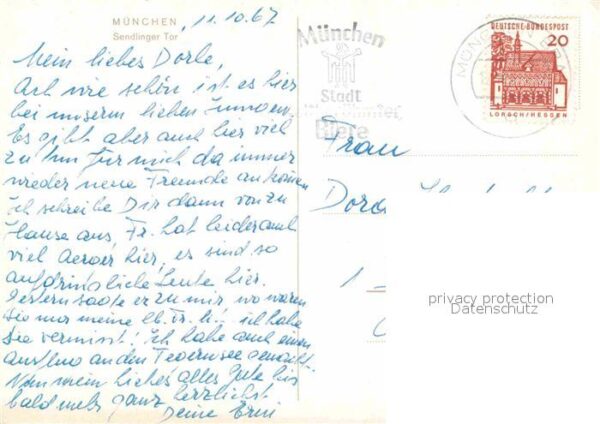 MÜNCHEN
Sendlinger Tor
11.10.67
Mein liebes Dorle,
Ach wie schön ist es hier
bei unserm lieben
Es gibt aber auch hier viel
zu tun für mich da immer
wieder neue Freunde ankommen
Ich schreibe Dir dann von zu
Hause aus, Fr. hat leider auch
viel Aerger hier, es sind so
aufdringliche Leute hier.
Gestern sagte er zu mir, wo waren
Sie nur meine lb. Fr. H! ich habe
Sie vermisst! Ich habe auch einen
Ausflug an den Tegernsee gemacht.
Nun mein liebes alles Gute bis
bald mehr ganz herzlichst
Deine Erni
München
Stadt
Biere
DEUTSCHE BUNDESPOST
20
LORSCH/HESSEN
Frau
1
privacy protection
Datenschutz